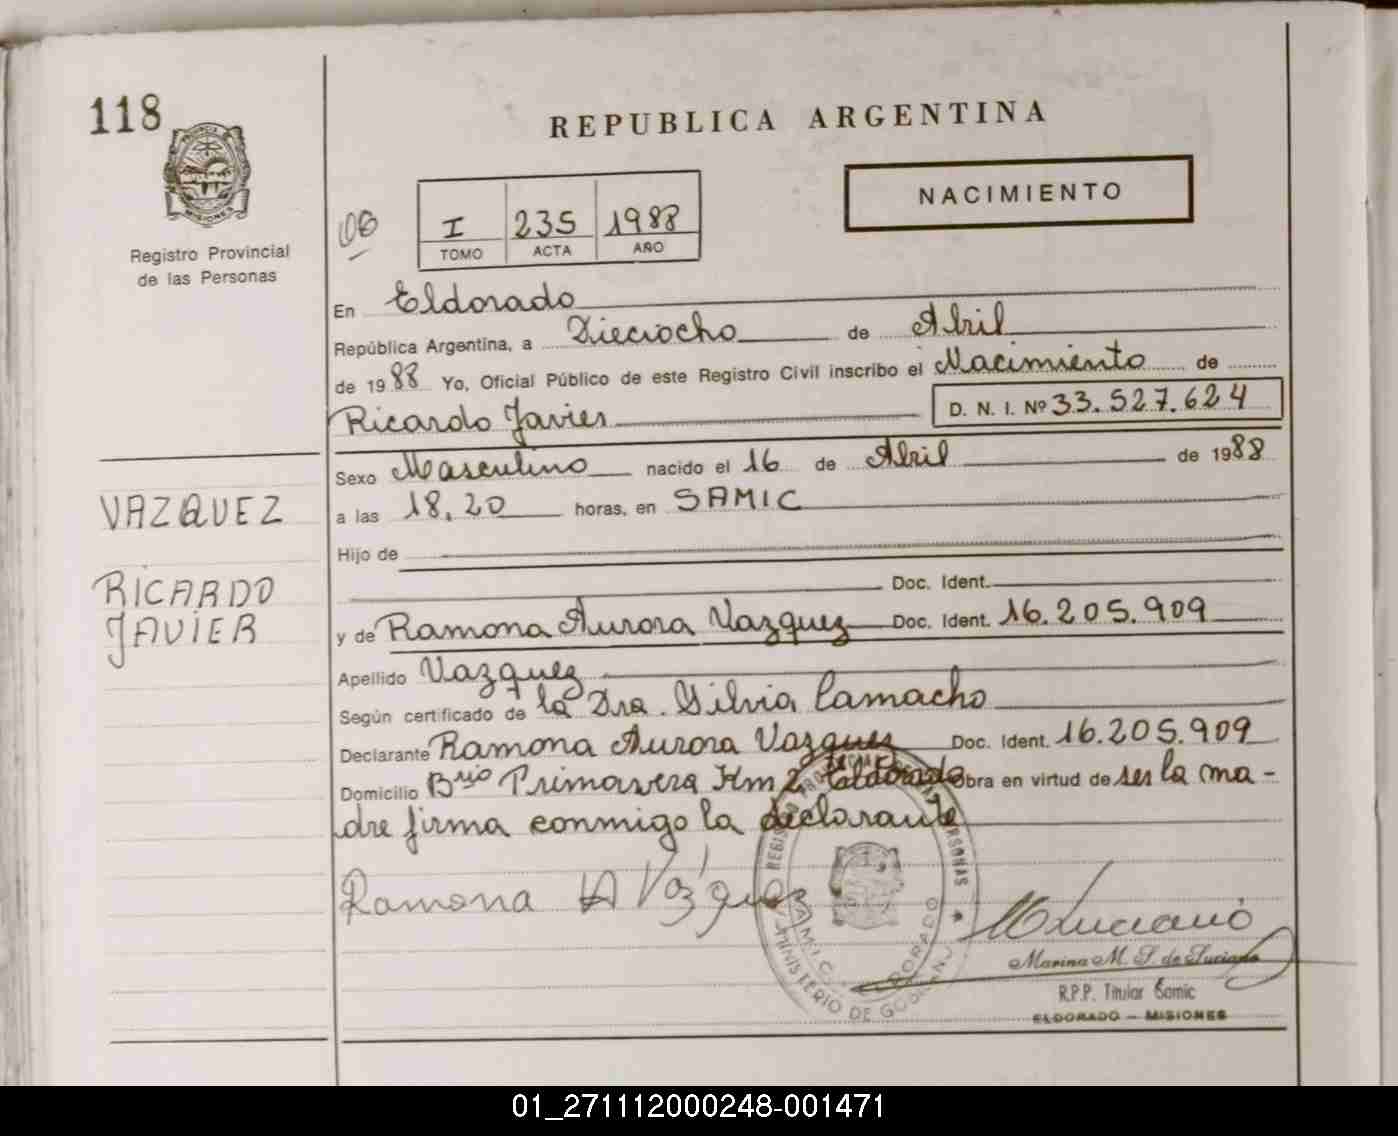 118
REPUBLICA ARGENTINA
PROVINCIA DE MISIONES
Registro Provincial
de las Personas
NACIMIENTO
08
I 235 1988
TOMO ACTA AÑO
En Eldorado
República Argentina, a Dieciocho de Abril
de 1988 Yo, Oficial Público de este Registro Civil inscribo el Nacimiento de
Ricardo Javier D. N. I. Nº 33.527.624
Sexo Masculino nacido el 16 de Abril de 1988
VAZQUEZ
a las 18,20 horas, en SAMIC
Hijo de
RICARDO
JAVIER
Doc. Ident.
y de Ramona Aurora Vazquez Doc. Ident. 16.205.909
Apellido Vazquez
Según certificado de la Dra. Silvia Camacho
Declarante Ramona Aurora Vazquez Doc. Ident. 16.205.909
Domicilio Brio Primavera Km 2 Eldorado Obra en virtud de ser la ma-
dre firma conmigo la declarante
Ramona A Vázquez
REGISTRO PROVINCIAL DE LAS PERSONAS
SAMIC. ELDORADO
MINISTERIO DE GOBIERNO
M Luciano
Marina M. S. de Luciano
R.P.P. Titular Samic
ELDORADO - MISIONES
01_271112000248-001471